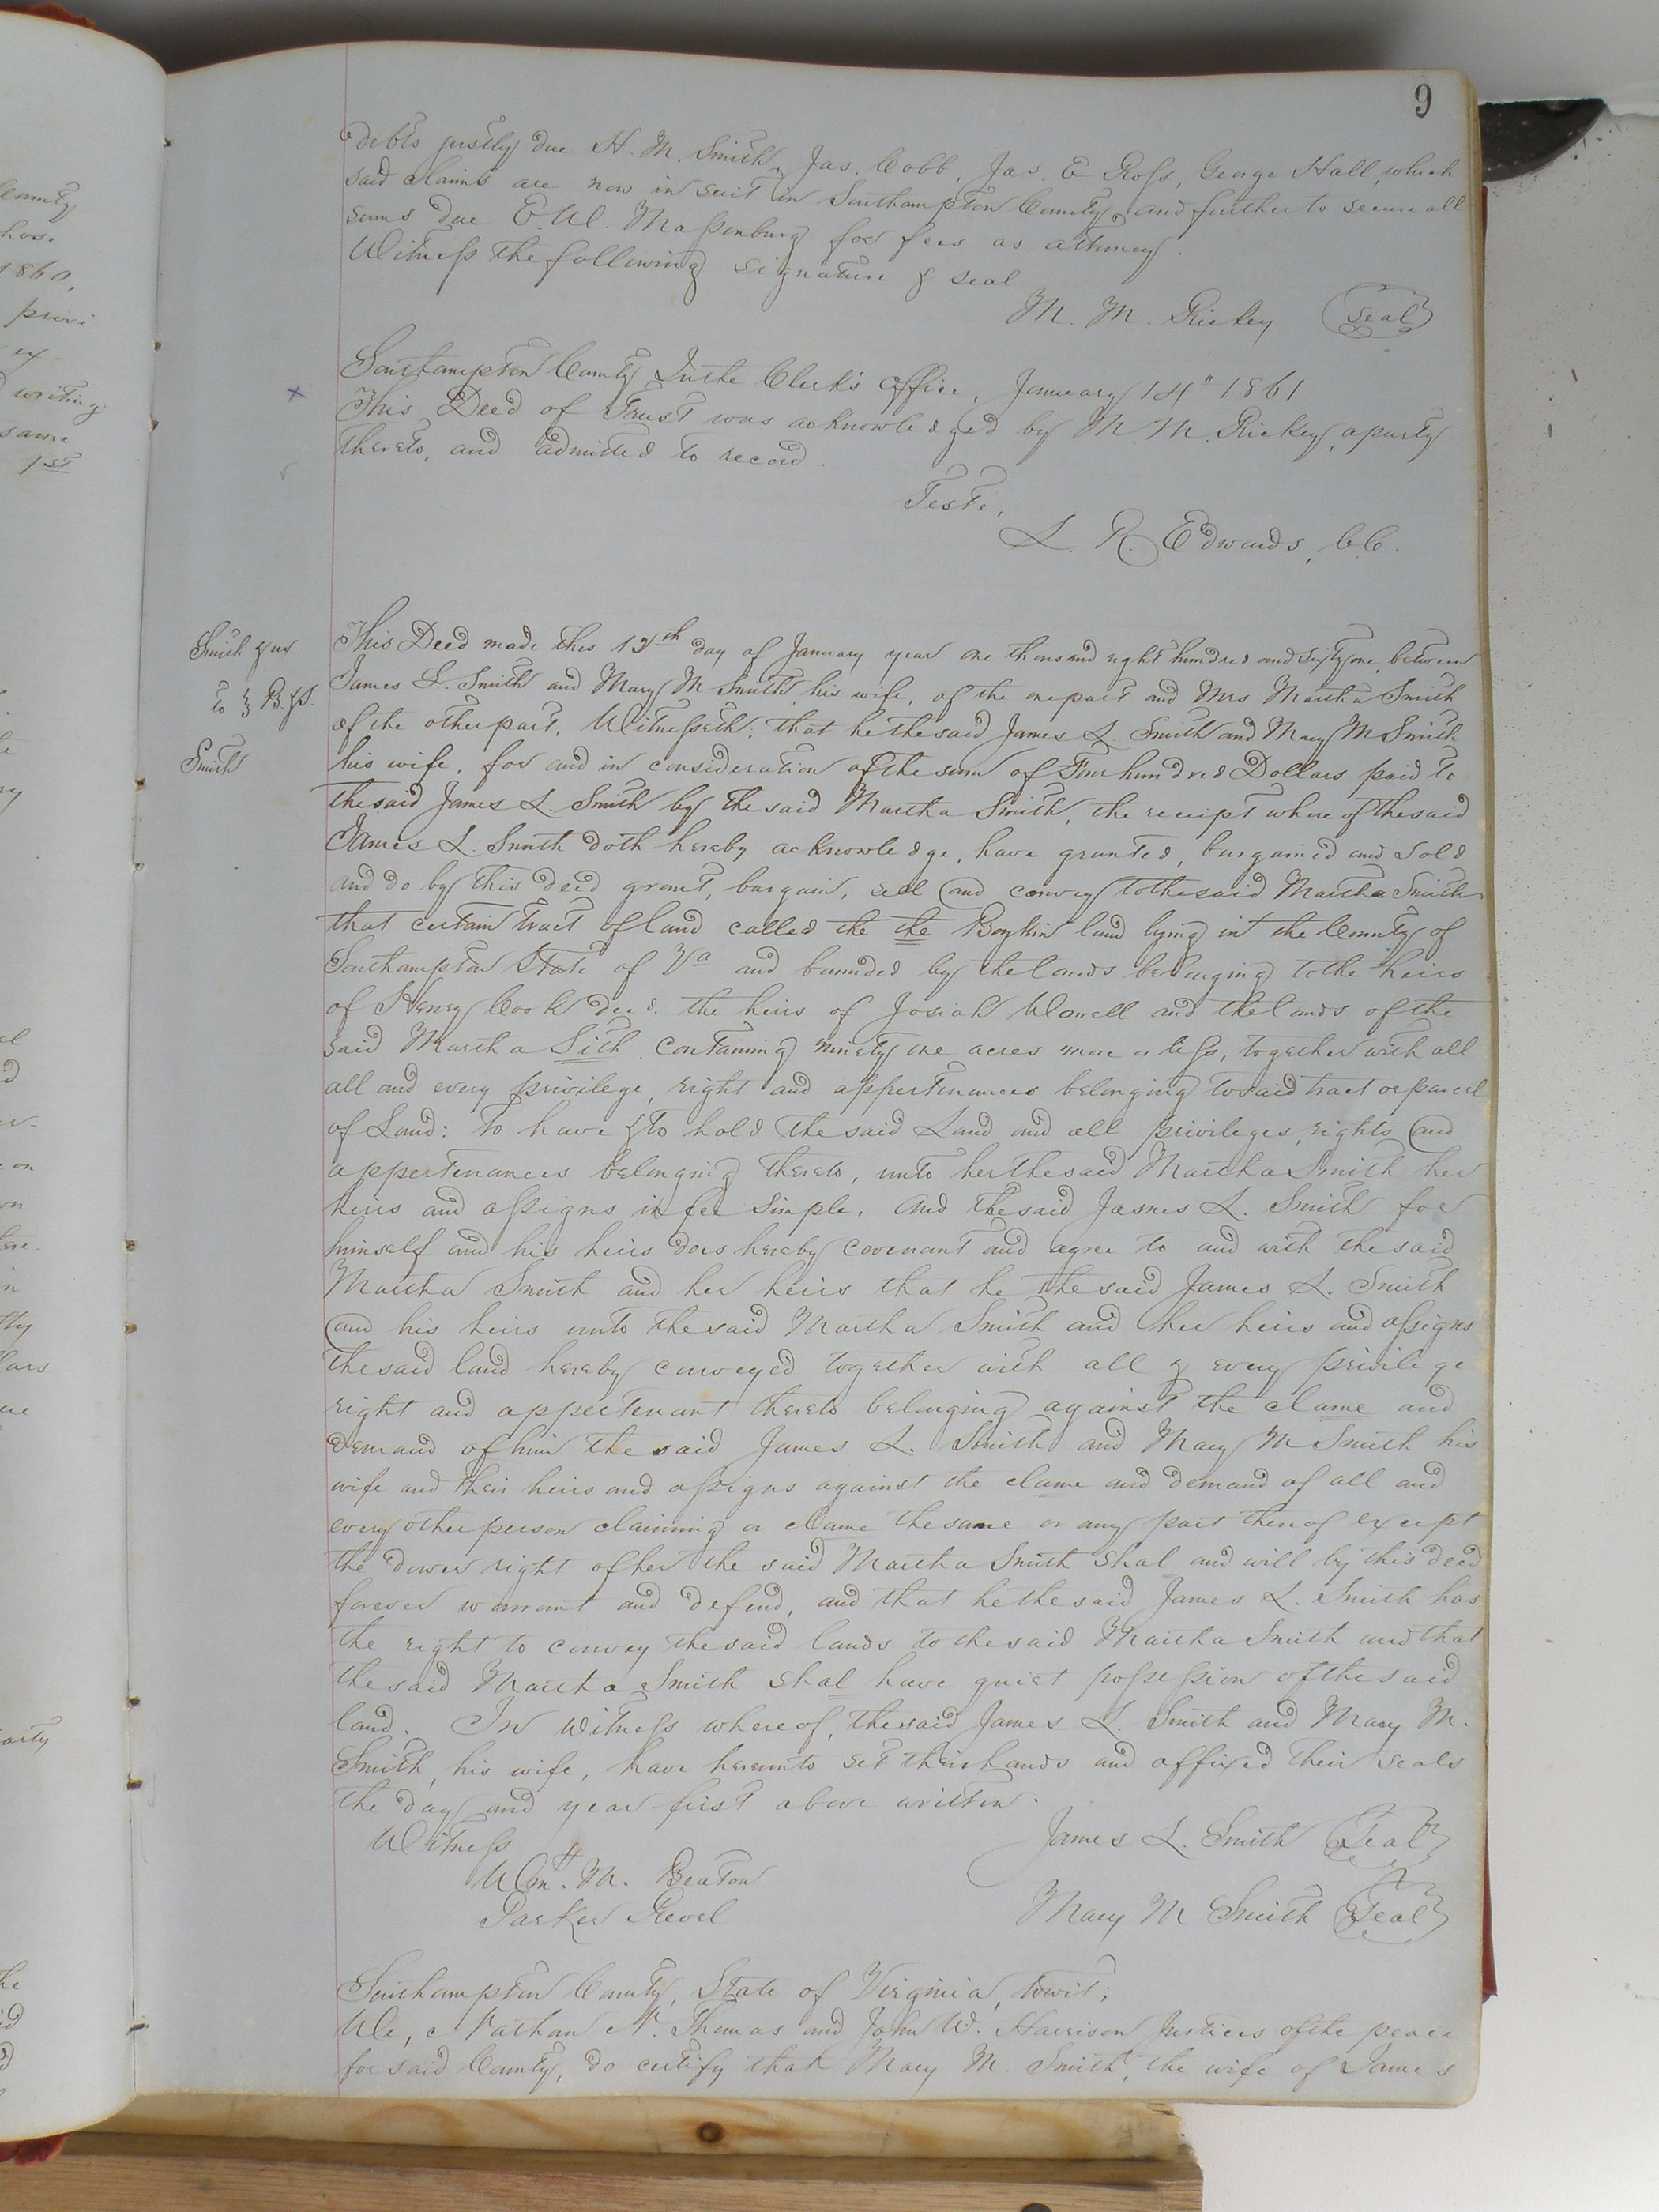 9
debts justly due H. M. Smith, Jas. Cobb, Jas. E Ross, George Hall, which
said claims are now in suit in Southampton County, and further to secure all
sums due E. W. Massenburg for fees as attorney.
Witness the following signature & seal
M. M. Rickey Seal
Southampton County In the Clerk's office, January 14" 1861
This Deed of Trust was acknowledged by M. M. Rickey, a party
thereto, and admitted to record.
Teste,
L. R. Edwards, CC.
Smith & ux
to } B. & S.
Smith
This Deed made this 12th day of January year one thousand eight hundred and sixty one, between
James L. Smith and Mary M Smith, his wife, of the one part and Mrs Martha Smith
of the other part, Witnesseth: that he the said James L. Smith and Mary M Smith
his wife, for and in consideration of the sum of Four hundred Dollars paid to
the said James L. Smith by the said Martha Smith, the receipt where of the said
James L. Smith doth hereby acknowledge, have granted, bargained and sold
and do by this deed grant, bargain, sell and convey to the said Martha Smith
that certain tract of land called the the Boykin land lying in the County of
Southampton State of Va and bounded by the lands belonging to the heirs
of Henry Cook decd. the heirs of Josiah Worrell and the lands of the
said Martha Sith containing ninety one acres more or less, together with all
all and every privilege, right and appertinances belonging to said tract or parcel
of Land: To have & to hold the said Land and all privileges, rights and
appertenances belonging thereto, unto her the said Martha Smith her
heirs and assigns in fee simple. And the said James L. Smith for
himself and his heirs does hereby covenant and agree to and with the said
Martha Smith and her heirs that he the said James L. Smith
and his heirs unto the said Martha Smith and her heirs and assigns
the said land hereby conveyed together with all & every privilege
right and appertenant thereto belonging against the clame and
demand of him the said James L. Smith and Mary M Smith his
wife and their heirs and assigns against the clame and demand of all and
every other person claiming or clame the same or any part thereof except
the dower right of her the said Martha Smith shal and will by this deed
forever warrant and defend, and that he the said James L. Smith has
the right to convey the said lands to the said Martha Smith and that
the said Martha Smith shal have quiet possession of the said
land. In Witness whereof, the said James L. Smith and Mary M.
Smith, his wife, have hereunto set their hands and affixed their seals
the day and year first above written.
Witness
James L. Smith Seal
Wm. M. Beaton
Parker Revel
Mary M Smith Seal
Southampton County, State of Virginia, towit;
We, Nathan N. Thomas and John W. Harrison Justices of the peace
for said County, do certify that Mary M. Smith, the wife of James